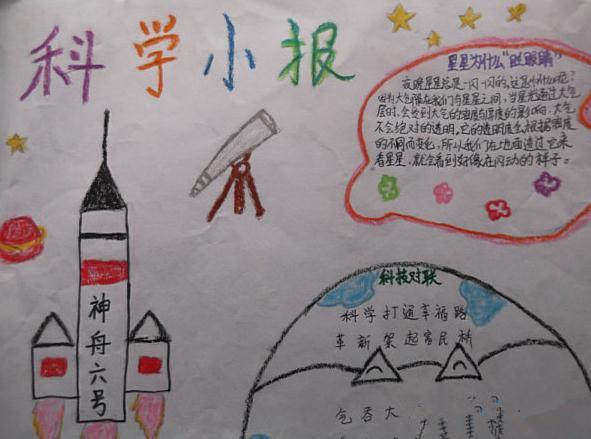 科学小报
星星为什么"眨眼睛"
夜晚星星总是一闪一闪的,这是什么呢?
因为大气隔在我们与星星之间,当星光通过大气
层时,会受到大气的密度与厚度的影响。大气
不会绝对的透明,它的透明度会根据密度
的不同而变化,所以我们在地面透过它来
看星星,就会看到好像在闪动的样子。
科技对联
科学打通幸福路
革新架起富民桥
气吞大
神舟六号